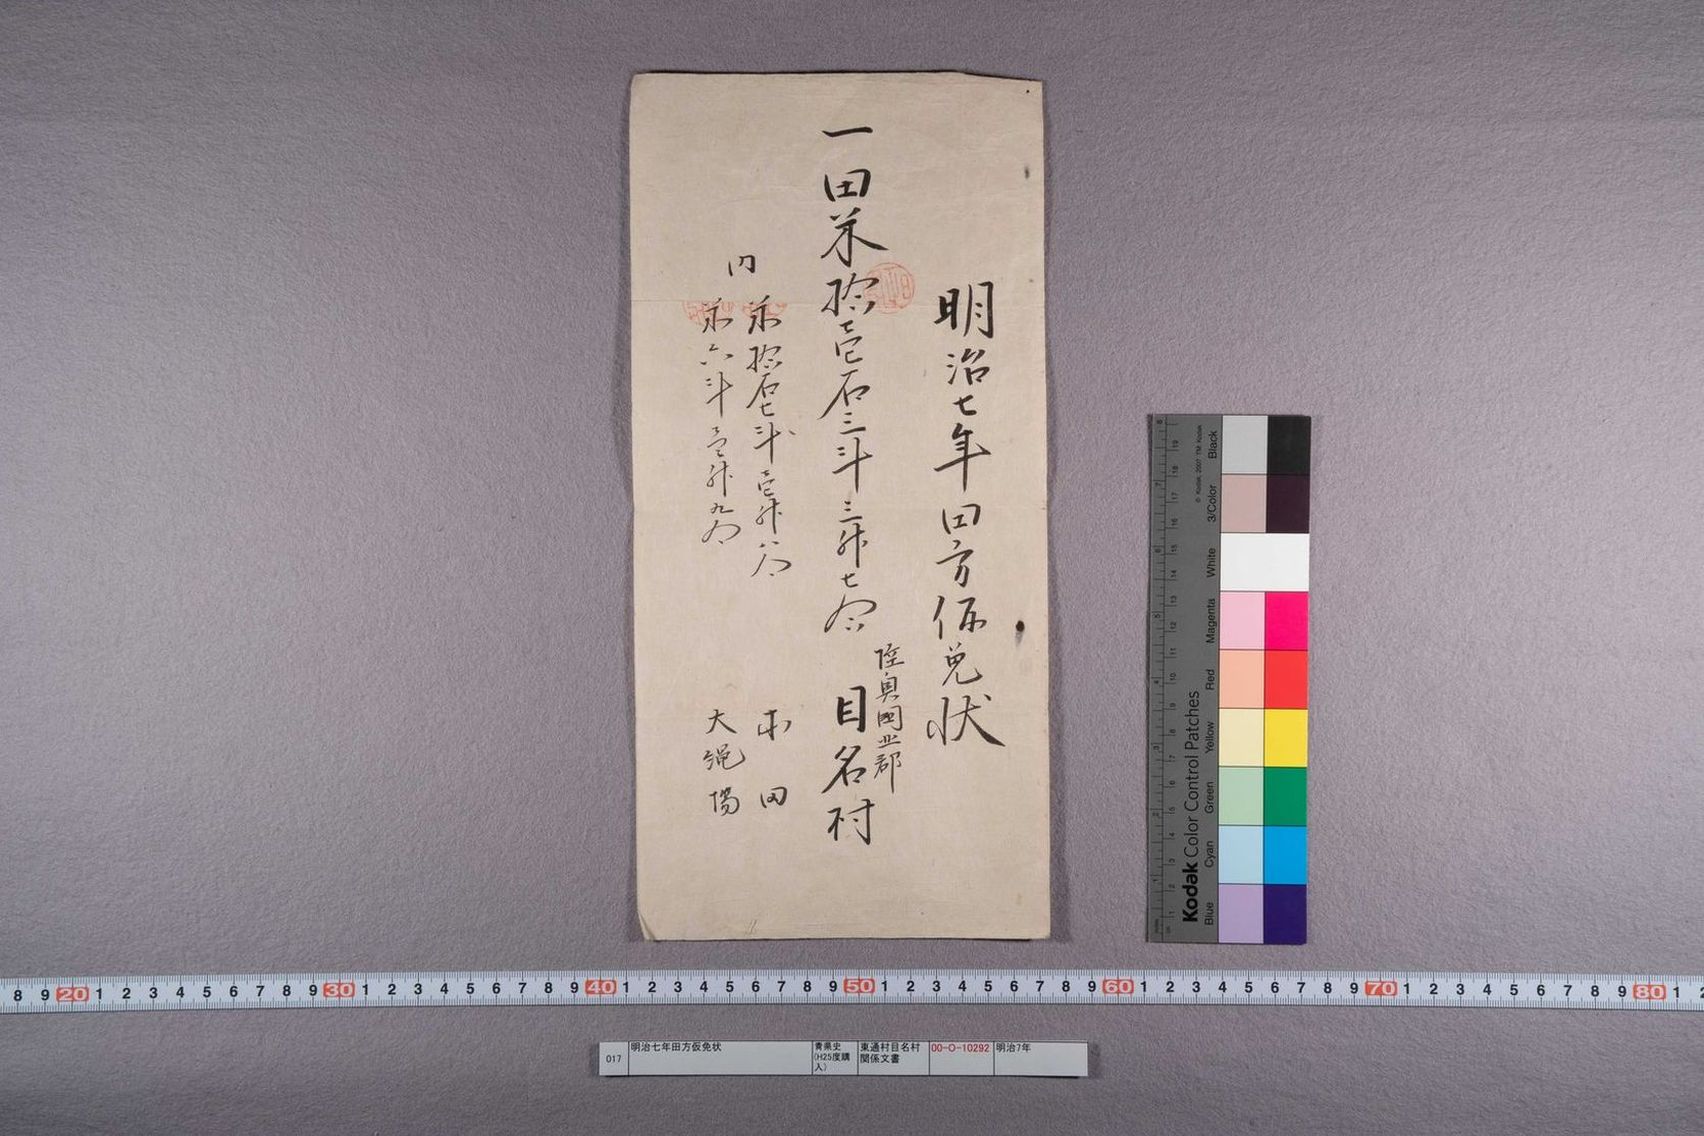 明治七年田方仮免状
一田米拾壱石三斗三升七合
陸奥国北郡
目名村
内
米拾石七斗壱升八合
本田
米六斗壱升九合
大縄場
Kodak Color Control Patches
© Kodak, 2007 TM: Kodak
Blue Cyan Green Yellow Red Magenta White 3/Color Black
8 9 20 1 2 3 4 5 6 7 8 9 30 1 2 3 4 5 6 7 8 9 40 1 2 3 4 5 6 7 8 9 50 1 2 3 4 5 6 7 8 9 60 1 2 3 4 5 6 7 8 9 70 1 2 3 4 5 6 7 8 9 80 1 2
017
明治七年田方仮免状
青県史
(H25度購
入)
東通村目名村
関係文書
00-O-10292
明治7年